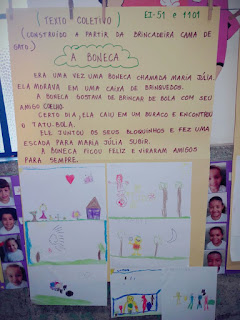 (TEXTO COLETIVO) EI-51 e 1101
(CONSTRUÍDO A PARTIR DA BRINCADEIRA CAMA DE
GATO)
A BONECA
ERA UMA VEZ UMA BONECA CHAMADA MARIA JÚLIA.
ELA MORAVA EM UMA CAIXA DE BRINQUEDOS.
A BONECA GOSTAVA DE BRINCAR DE BOLA COM SEU
AMIGO COELHO.
CERTO DIA, ELA CAIU EM UM BURACO E ENCONTROU
O TATU-BOLA.
ELE JUNTOU OS SEUS BLOQUINHOS E FEZ UMA
ESCADA PARA MARIA JÚLIA SUBIR.
A BONECA FICOU FELIZ E VIRARAM AMIGOS
PARA SEMPRE.